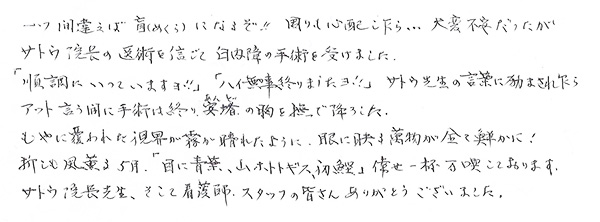 一つ間違えば盲(めくら)になるぞ!! 周りも心配したら... 大変不安だったが
サトウ院長の医術を信じて白内障の手術を受けました.
「順調にいっていますヨ!!」「ハイ無事終りましたヨ!!」 サトウ先生の言葉に励まされたら
アット言う間に手術は終り、安堵の胸を撫で降ろした.
もやに覆われた視界が霧が晴れたように、眼に映る萬物が全て鮮かに!
折しも風薫る5月.「目に青葉、山ホトトギス、初鰹」倖せ一杯 万喫しております.
サトウ院長先生、そして看護師.スタッフの皆さんありがとうございました.